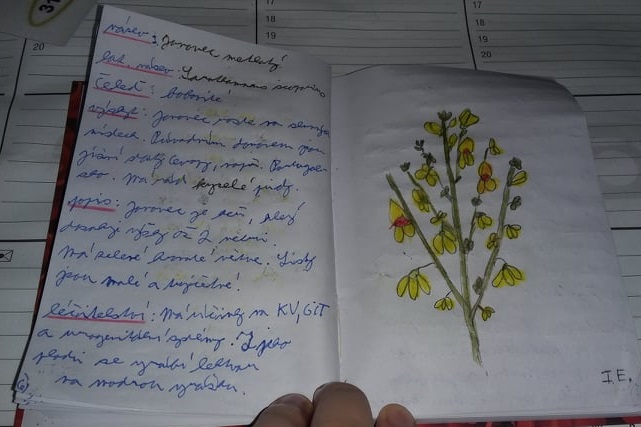 název: Janovec metlatý
lat. název: Sarothamnus scoparius
Čeleď: bobovité
výskyt: Janovec roste na
místech. Původním domovem jsou
jižní státy Evropy, např. Portugal-
sko. Má rád kyselé půdy.
popis: Janovec je keř, který
dosahuje výšky až 2 metrů.
Má zelené hranaté větve. Listy
jsou malé a trojčetné.
léčitelství: Má účinky na KV, GIT
a urogenitální systémy. Z jeho
plodů se vyrábí lektin
na modrou vyrážku.
6)
I.E.
17
18
19
20
17
18
19
20
20
31